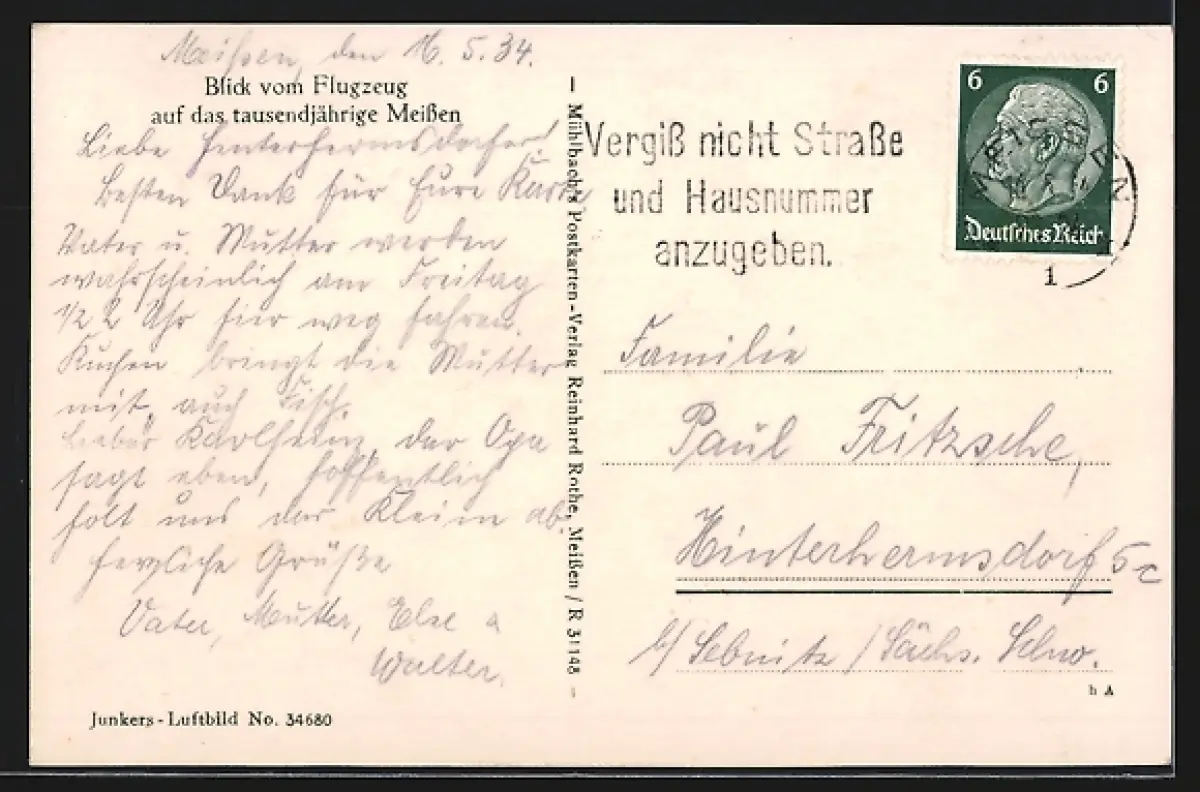 Meißen, den 16. 5. 34.
Blick vom Flugzeug
auf das tausendjährige Meißen
Liebe Hinterhermsdorfer!
Besten Dank für Eure Karte
Vater u. Mutter werden
wahrscheinlich am Freitag
1/2 2 Uhr hier weg fahren.
Kuchen bringt die Mutter
mit, auch Fisch.
Lieber Karlheinz, der Opa
sagt eben, hoffentlich
holt uns der Kleine ab.
Herzliche Grüße
Vater, Mutter, Else u
Walter.
Junkers-Luftbild No. 34680
– Mühlbach's Postkarten-Verlag Reinhard Rothe, Meißen / R 31148 –
Vergiß nicht Straße
und Hausnummer
anzugeben.
6 6
Deutsches Reich
MEISSEN
1
Familie
Paul Fritzsche,
Hinterhermsdorf 5c
b/ Sebnitz / Sächs. Schw.
h A